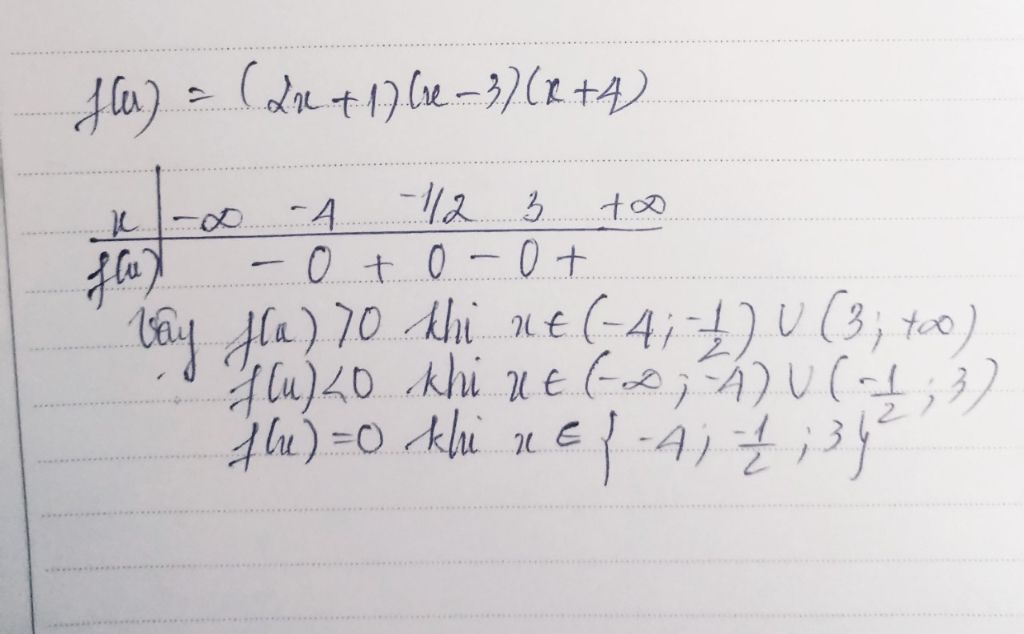 f(x) = (2x+1)(x-3)(x+4)
x -∞ -4 -1/2 3 +∞
f(x) - 0 + 0 - 0 +
Vậy f(x) > 0 khi x ∈ (-4; -1/2) ∪ (3; +∞)
f(x) < 0 khi x ∈ (-∞; -4) ∪ (-1/2; 3)
f(x) = 0 khi x ∈ {-4; -1/2; 3}